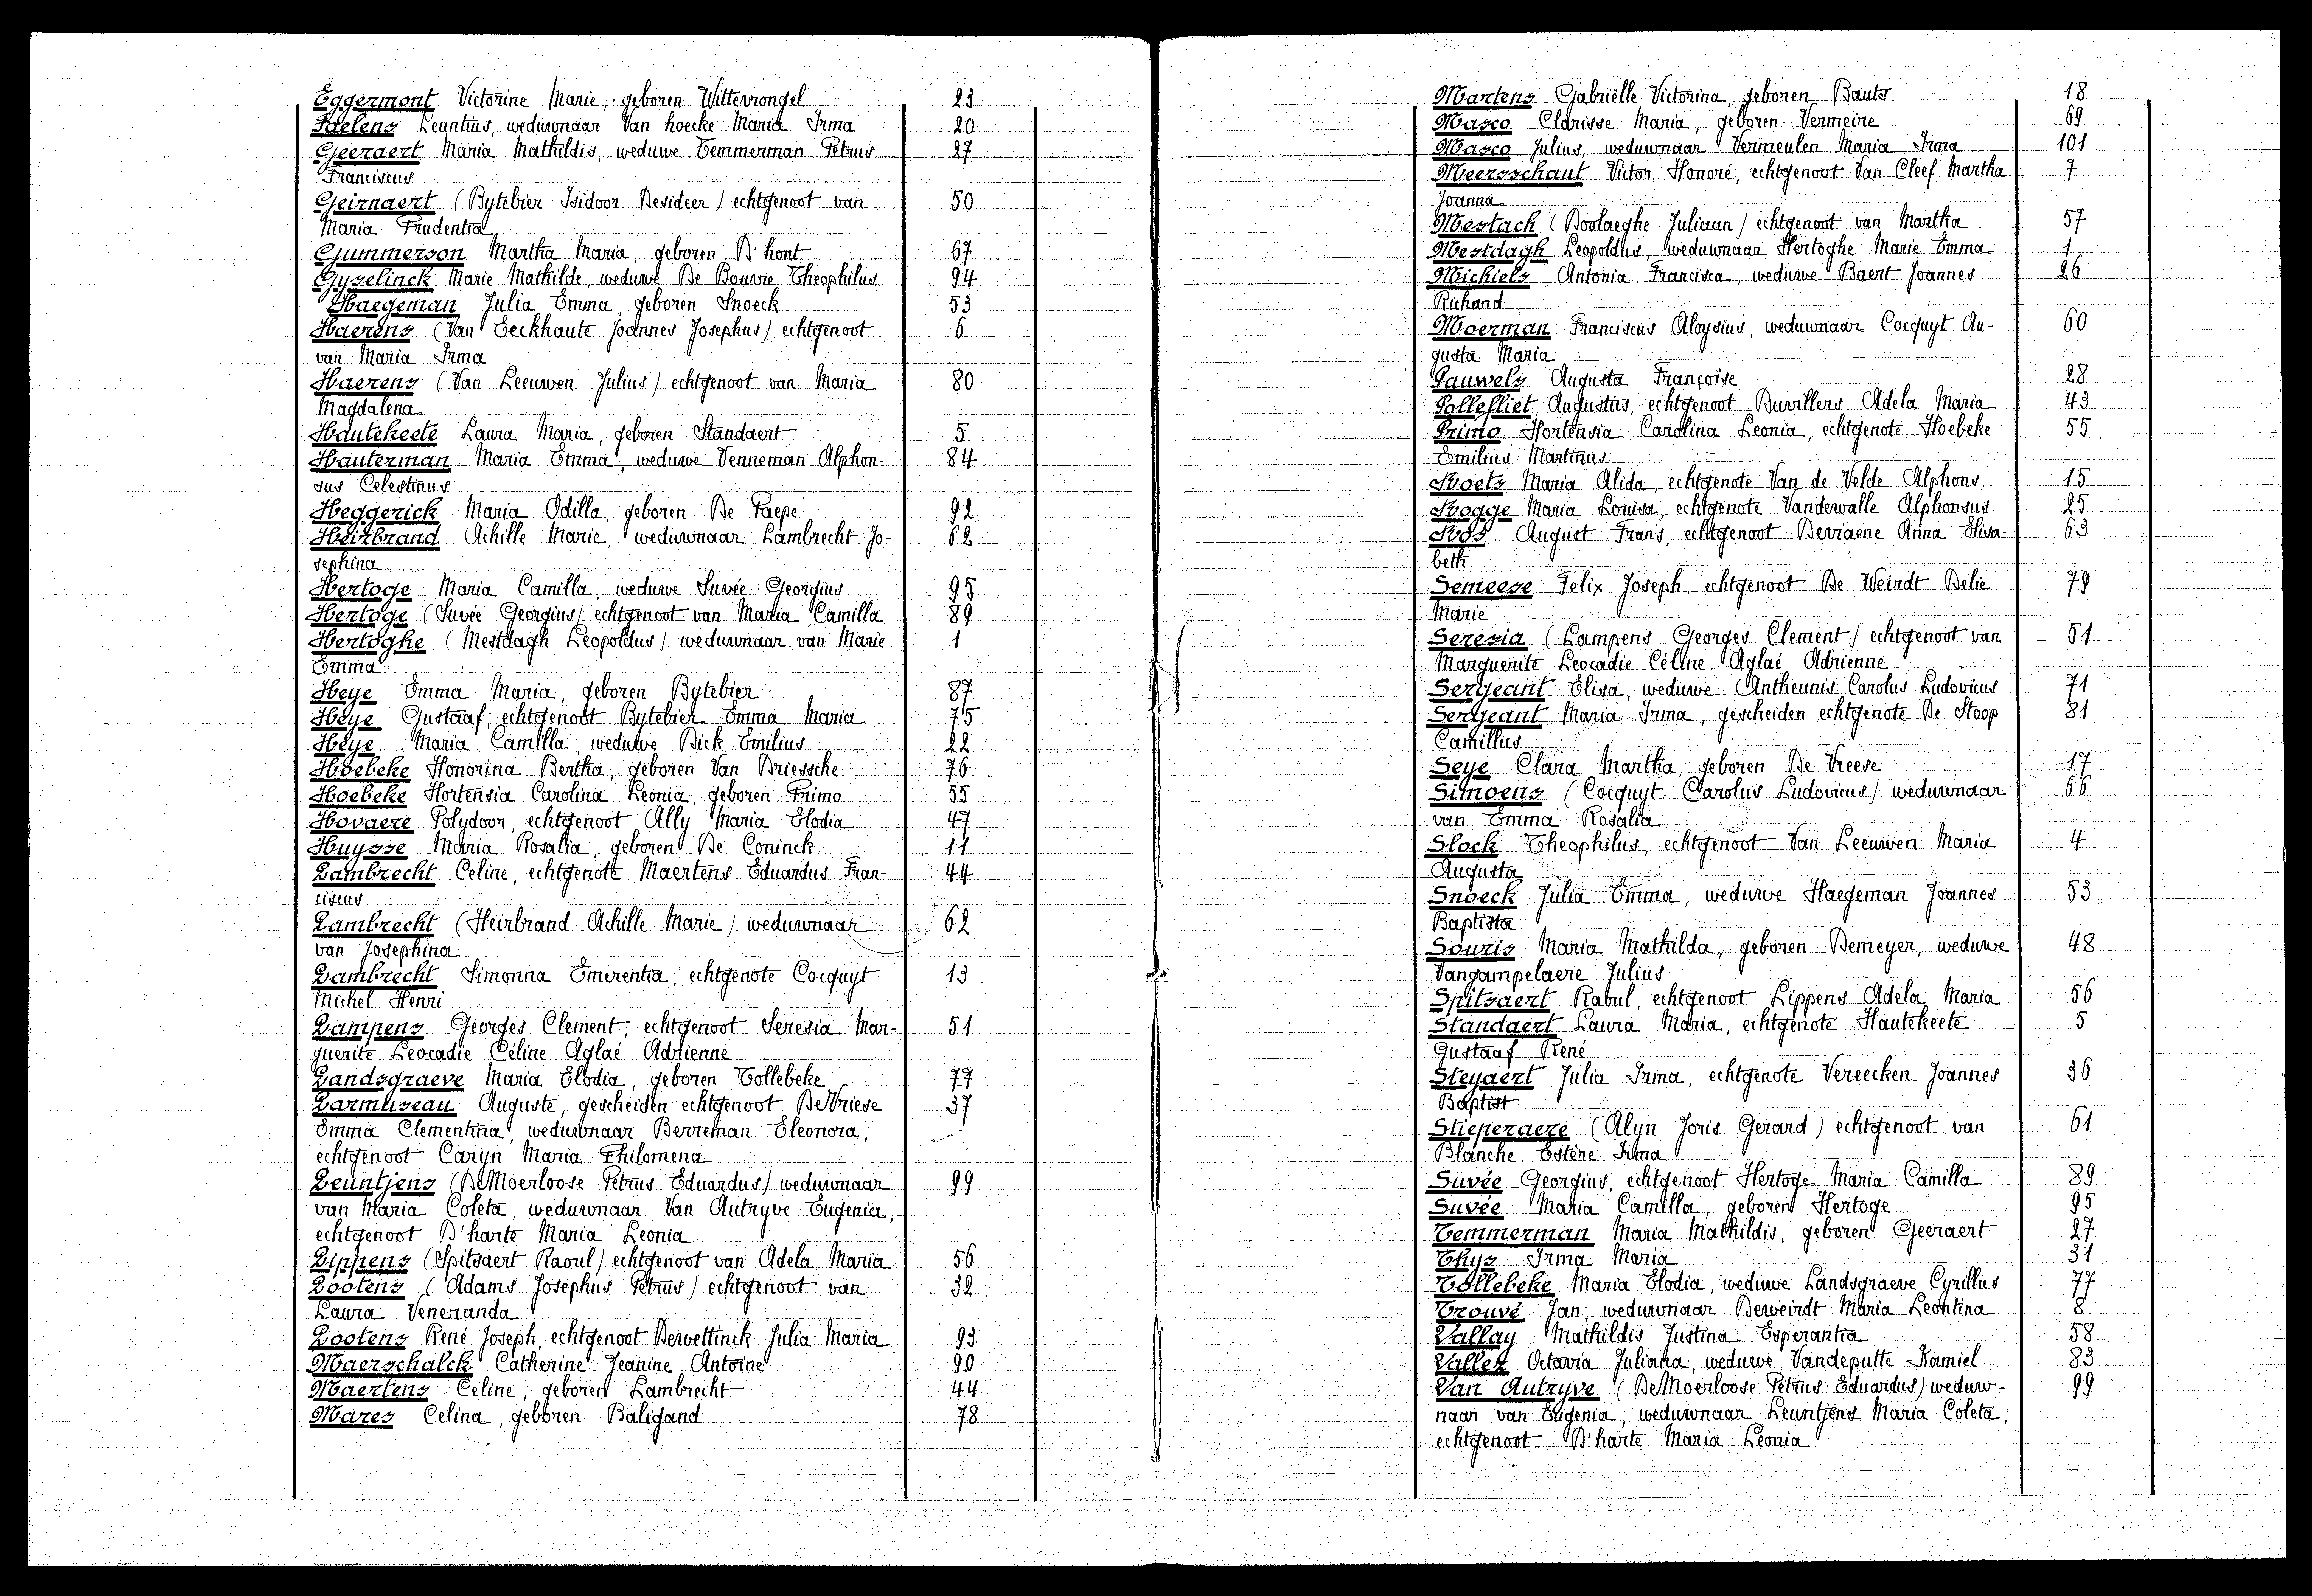 Eggermont Victorine Marie, geboren Wittevrongel 23
Faelens Leuntius, weduwnaar Van hoecke Maria Irma 20
Geeraert Maria Mathildis, weduwe Temmerman Petrus 27
Franciscus
Geirnaert (Bytebier Isidoor Desideer) echtgenoot van 50
Maria Prudentia
Gummerson Martha Maria, geboren D'hont 67
Gyselinck Marie Mathilde, weduwe De Bouvre Theophilus 94
Haegeman Julia Emma, geboren Snoeck 53
Haerens (Van Eeckhaute Joannes Josephus) echtgenoot 6
van Maria Irma
Haerens (Van Leeuwen Julius) echtgenoot van Maria 80
Magdalena
Hautekeete Laura Maria, geboren Standaert 5
Hauterman Maria Emma, weduwe Venneman Alphon- 84
sus Celestinus
Heggerick Maria Odilla, geboren De Paepe 92
Heirbrand Achille Marie, weduwnaar Lambrecht Jo- 62
sephina
Hertoge Maria Camilla, weduwe Suvée Georgius 95
Hertoge (Suvée Georgius) echtgenoot van Maria Camilla 89
Hertoghe (Mestdagh Leopoldus) weduwnaar van Marie 1
Emma
Heye Emma Maria, geboren Bytebier 87
Heye Gustaaf, echtgenoot Bytebier Emma Maria 75
Heye Maria Camilla, weduwe Dick Emilius 22
Hoebeke Honorina Bertha, geboren Van Driessche 76
Hoebeke Hortensia Carolina Leonia, geboren Primo 55
Hovaere Polydoor, echtgenoot Ally Maria Elodia 47
Huysse Maria Rosalia, geboren De Coninck 11
Lambrecht Celine, echtgenote Maertens Eduardus Fran- 44
ciscus
Lambrecht (Heirbrand Achille Marie) weduwnaar 62
van Josephina
Lambrecht Simonna Emerentia, echtgenote Cocquyt 13
Michel Henri
Lampens Georges Clement, echtgenoot Seresia Mar- 51
guerite Leocadie Céline Aglaé Adrienne
Landsgraeve Maria Elodia, geboren Tollebeke 77
Larmuseau Auguste, gescheiden echtgenoot De Vriese 37
Emma Clementina, weduwnaar Berreman Eleonora,
echtgenoot Caryn Maria Philomena
Leuntjens (De Moerloose Petrus Eduardus) weduwnaar 99
van Maria Coleta, weduwnaar Van Autryve Eugenia,
echtgenoot D'harte Maria Leonia
Lippens (Spitsaert Raoul) echtgenoot van Adela Maria 56
Lootens (Adams Josephus Petrus) echtgenoot van 32
Laura Veneranda
Lootens René Joseph, echtgenoot Dewettinck Julia Maria 93
Maerschalck Catherine Jeanine Antoine 90
Maertens Celine, geboren Lambrecht 44
Mares Celina, geboren Baligand 78
Martens Gabriëlle Victorina, geboren Bauts 18
Masco Clarisse Maria, geboren Vermeire 69
Masco Julius, weduwnaar Vermeulen Maria Irma 101
Meersschaut Victor Honoré, echtgenoot Van Cleef Martha 7
Joanna
Mestach (Boolaeghe Juliaan) echtgenoot van Martha 57
Mestdagh Leopoldus, weduwnaar Hertoghe Marie Emma 1
Michiels Antonia Francisca, weduwe Baert Joannes 26
Richard
Moerman Franciscus Aloysius, weduwnaar Cocquyt Au- 60
gusta Maria
Pauwels Augusta Françoise 28
Pollefliet Augustus, echtgenoot Duvillers Adela Maria 43
Primo Hortensia Carolina Leonia, echtgenote Hoebeke 55
Emilius Martinus
Roets Maria Alida, echtgenote Van de Velde Alphons 15
Rogge Maria Louisa, echtgenote Vandewalle Alphonsus 25
Ros August Frans, echtgenoot Deviaene Anna Elisa- 63
beth
Semeese Felix Joseph, echtgenoot De Weirdt Delie 79
Marie
Seresia (Lampens Georges Clement) echtgenoot van 51
Marguerite Leocadie Céline Aglaé Adrienne
Sergeant Elisa, weduwe Antheunis Carolus Ludovicus 71
Sergeant Maria Irma, gescheiden echtgenote De Stoop 81
Camillus
Seye Clara Martha, geboren De Vreese 17
Simoens (Cocquyt Carolus Ludovicus) weduwnaar 66
van Emma Rosalia
Slock Theophilus, echtgenoot Van Leeuwen Maria 4
Augusta
Snoeck Julia Emma, weduwe Haegeman Joannes 53
Baptista
Souris Maria Mathilda, geboren Demeyer, weduwe 48
Vangampelaere Julius
Spitsaert Raoul, echtgenoot Lippens Adela Maria 56
Standaert Laura Maria, echtgenote Hautekeete 5
Gustaaf René
Steyaert Julia Irma, echtgenote Vereecken Joannes 36
Baptist
Stieperaere (Alyn Joris Gerard) echtgenoot van 61
Blanche Estère Irma
Suvée Georgius, echtgenoot Hertoge Maria Camilla 89
Suvée Maria Camilla, geboren Hertoge 95
Temmerman Maria Mathildis, geboren Geeraert 27
Thys Irma Maria 31
Tollebeke Maria Elodia, weduwe Landsgraeve Cyrillus 77
Trouvé Jan, weduwnaar Deweirdt Maria Leontina 8
Vallay Mathildis Justina Esperantia 58
Vallez Octavia Juliana, weduwe Vandeputte Kamiel 83
Van Autryve (De Moerloose Petrus Eduardus) weduw- 99
naar van Eugenia, weduwnaar Leuntjens Maria Coleta,
echtgenoot D'harte Maria Leonia